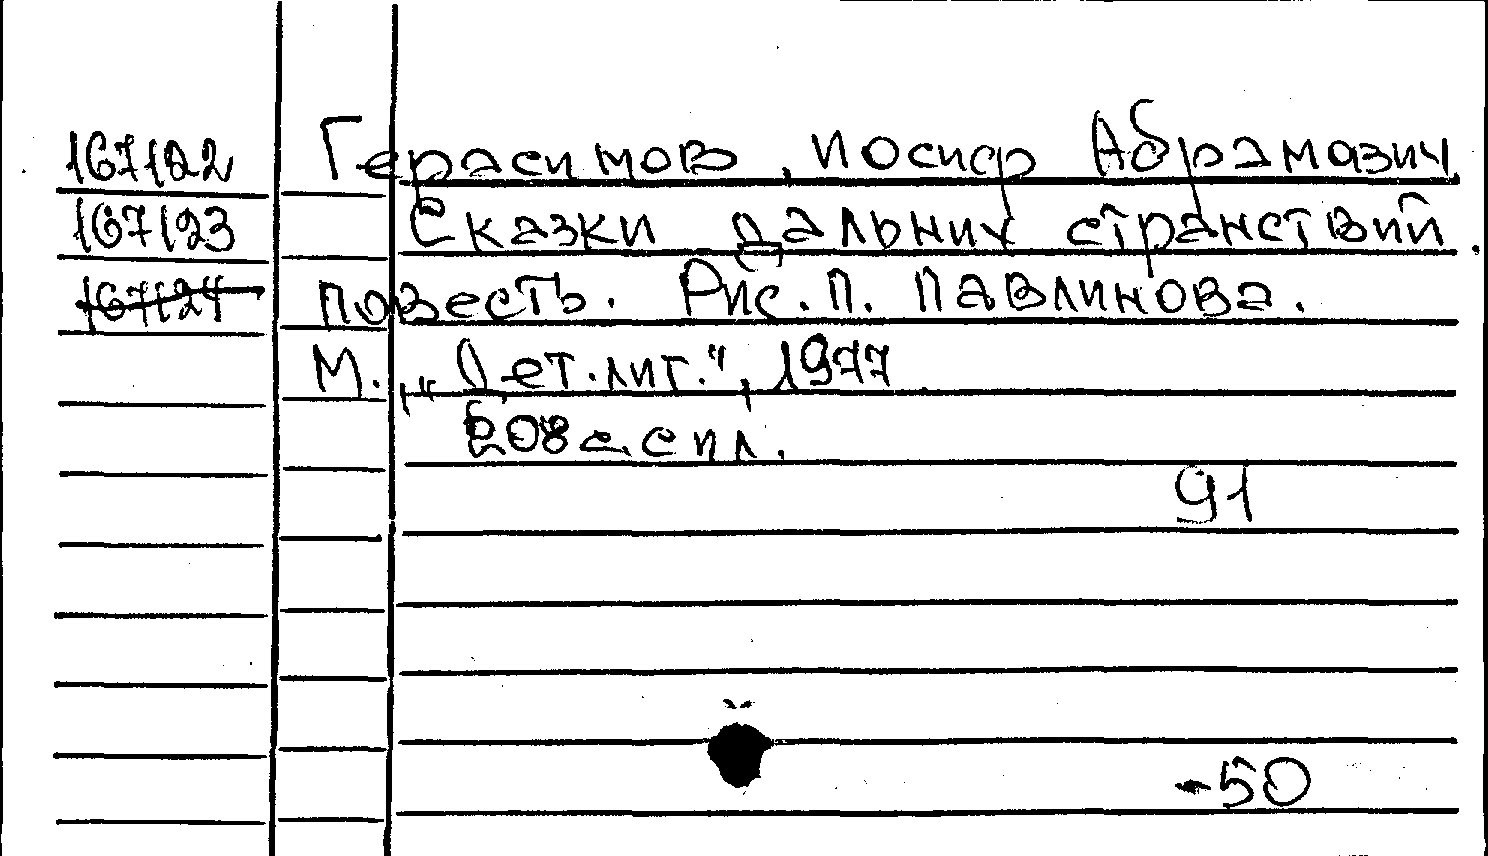 167122 Герасимов, Иосиф Абрамавич.
167123 Сказки дальних странствий.
167124 повесть. Рис. П. Павлинова.
М., „Дет. лит.", 1977
208 с. с ил.
91
-50